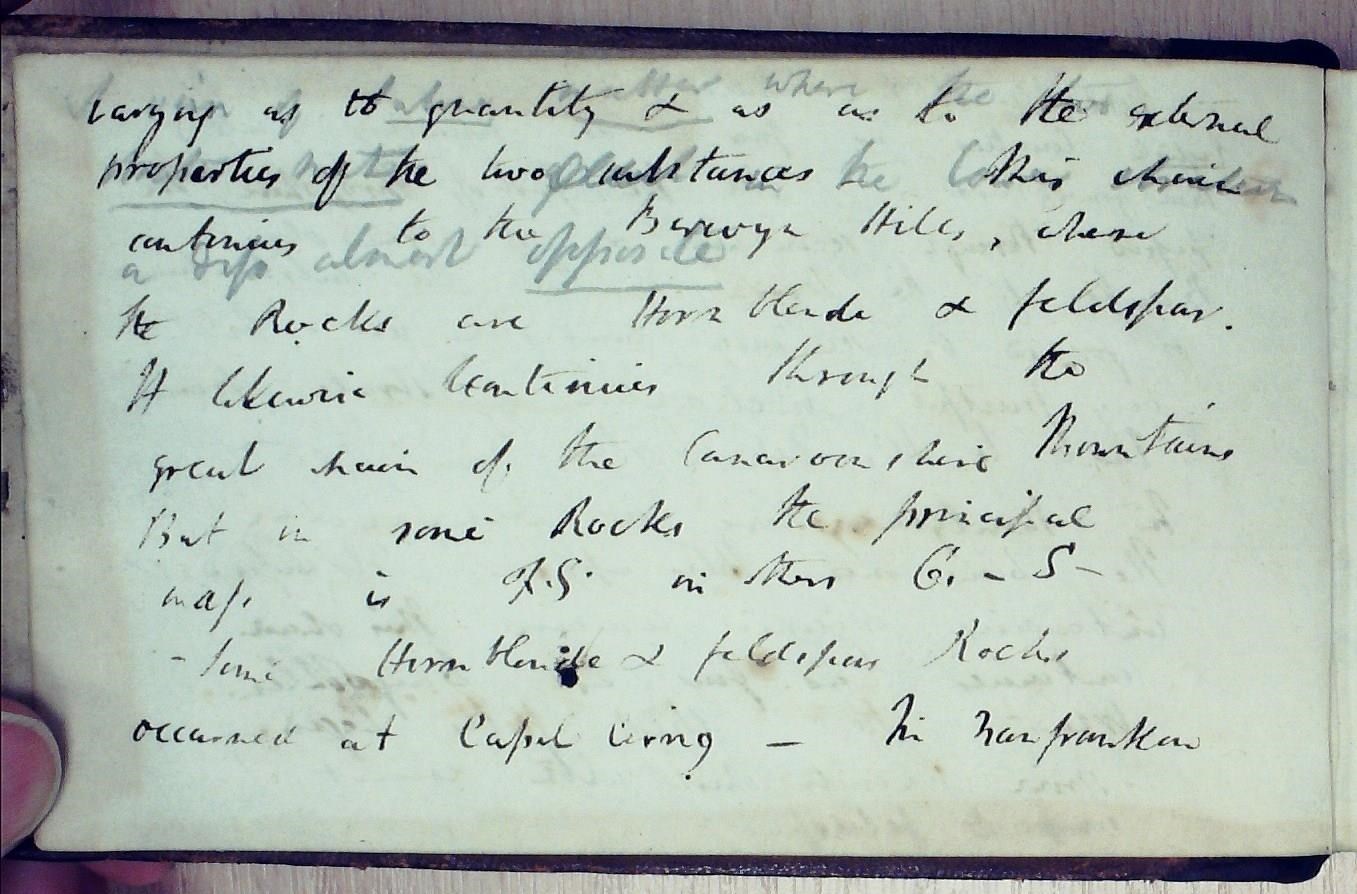 varying as to quantity & as as to the external
properties of the two substances This chain
continues to the Berwyn Hills, where
the Rocks are Hornblende & feldspar.
It likewise Continues through the
great chain of the Canarvonshire Mountains
But in some Rocks the principal
mass is F.S. in others G. - S -
- Some Hornblende & feldspar Rocks
occurred at Capel Cerrig - In
where the
a almost opposite